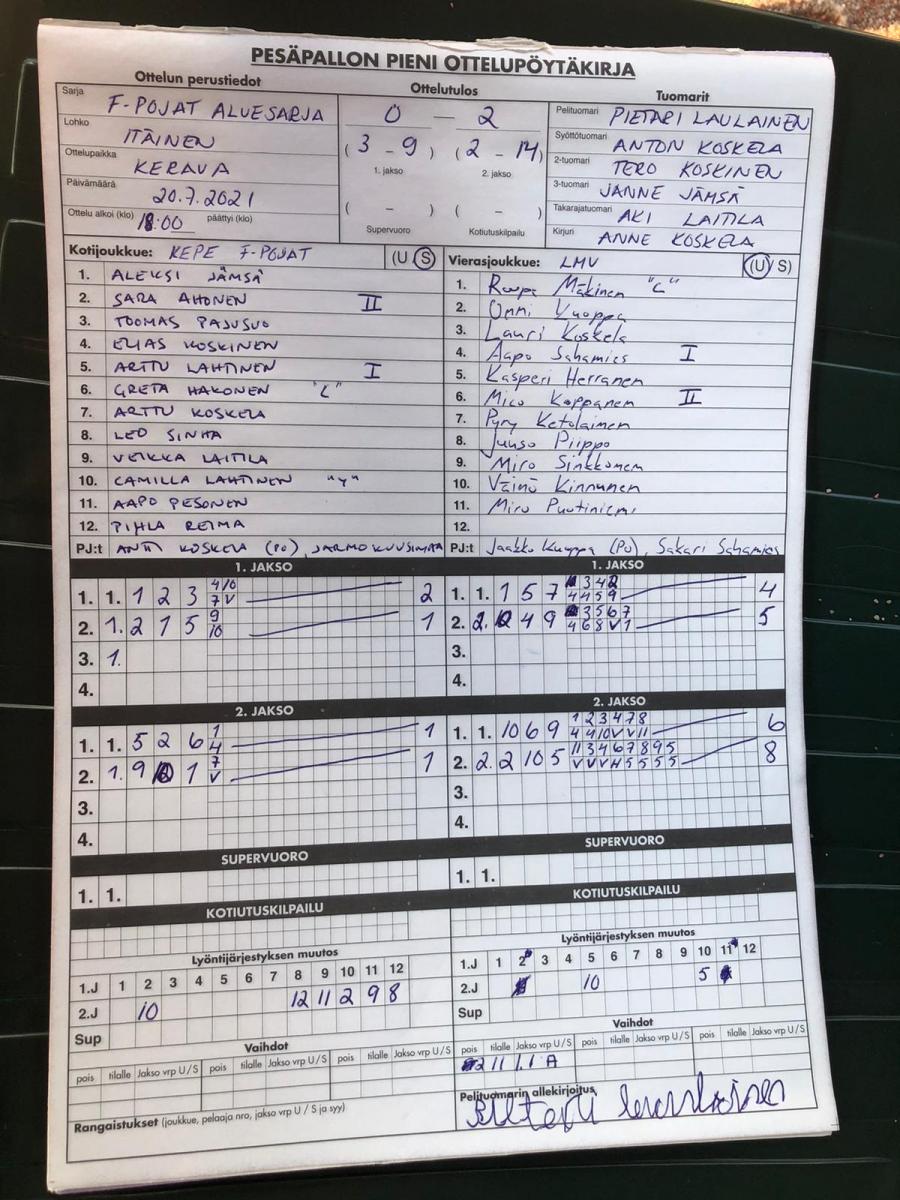 PESÄPALLON PIENI OTTELUPÖYTÄKIRJA
Ottelun perustiedot Ottelutulos Tuomarit
Sarja F-POJAT ALUESARJA
Lohko ITÄINEN
Ottelupaikka KERAVA
Päivämäärä 20.7.2021
Ottelu alkoi (klo) 18:00 päättyi (klo)
0 - 2
(3 - 9) (2 - 14)
1. jakso 2. jakso
( - ) ( - )
Supervuoro Kotiutuskilpailu
Pelituomari PIETARI LAULAINEN
Syöttötuomari ANTON KOSKELA
2-tuomari TERO KOSKINEN
3-tuomari JANNE JÄMSÄ
Takarajatuomari AKI LAITILA
Kirjuri ANNE KOSKELA
Kotijoukkue: KEPE F-POJAT (U S)
1. ALEKSI JÄMSÄ
2. SARA AHONEN II
3. TOOMAS PAJUSUO
4. ELIAS KOSKINEN
5. ARTTU LAHTINEN I
6. GRETA HAKONEN "L"
7. ARTTU KOSKELA
8. LEO SINHA
9. VEIKKA LAITILA
10. CAMILLA LAHTINEN "Y"
11. AAPO PESONEN
12. PIHLA REIMA
PJ:t ANTTI KOSKELA (PU), JARMO KUUSIMAA
Vierasjoukkue: LMV (U / S)
1. Roope Mäkinen "L"
2. Onni Vuoppa
3. Lauri Koskela
4. Aapo Sahamies I
5. Kasperi Herranen
6. Mico Kopponen II
7. Pyry Ketolainen
8. Juuso Piippo
9. Miro Sinkkonen
10. Väinö Kinnunen
11. Miro Puutiniemi
12.
PJ:t Jaakko Kuoppa (PU), Sakari Sahamies
1. JAKSO
1. 1. 1 2 3 4 10 2
7 V
2. 1. 2 1 5 9 1
10
3. 1.
4.
2. JAKSO
1. 1. 5 2 6 1 1
4
2. 1. 9 1 7 1
V
3.
4.
SUPERVUORO
1. 1.
KOTIUTUSKILPAILU
1. JAKSO
1. 1. 1 5 7 3 4 2 4
4 4 5 9
2. 2. 4 9 3 5 6 7 5
4 6 8 V 1
3.
4.
2. JAKSO
1. 1. 10 6 9 1 2 3 4 7 8 6
4 4 10 V V 11
2. 2. 2 10 5 11 3 4 6 7 8 9 5 8
V V V H 5 5 5 5
3.
4.
SUPERVUORO
1. 1.
KOTIUTUSKILPAILU
Lyöntijärjestyksen muutos
1.J 1 2 3 4 5 6 7 8 9 10 11 12
2.J 10 12 11 2 9 8
Sup
Vaihdot
pois tilalle Jakso vrp U/S pois tilalle Jakso vrp U/S pois tilalle Jakso vrp U/S
Rangaistukset (joukkue, pelaaja nro, jakso vrp U / S ja syy)
Lyöntijärjestyksen muutos
1.J 1 2 3 4 5 6 7 8 9 10 11 12
2.J 10 5
Sup
Vaihdot
pois tilalle Jakso vrp U/S pois tilalle Jakso vrp U/S pois tilalle Jakso vrp U/S
2 11 1.1 A
Pelituomarin allekirjoitus